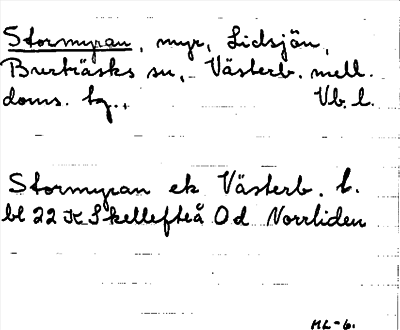 Stormyran, myr, Lidsjön,
Burträsks sn, Västerb. mell.
doms. tg., Vb. l.
Stormyran ek Västerb. l.
bl 22 K Skellefteå Od Norrliden
ML-6.